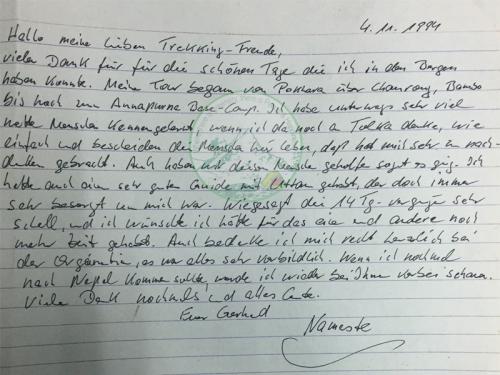 4.11.1994
Hallo meine lieben Trekking-Freude,
vielen Dank für für die schönen Tage die ich in den Bergen
haben konnte. Meine Tour begann von Pokhara über Bambo
bis hoch zum Annapurna Base-Camp. Ich habe unterwegs sehr viel
nette Menschen kennengelernt, wenn ich da noch a Tolka denke, wie
einfach und bescheiden die Menschen hier leben, daß hat mich sehr zu nach-
denken gebracht. Auch haben mir diese Menschen geholfen Ich
hatte auch ein sehr guten Guide mit gehabt, der doch immer
sehr besorgt um mich war. Wie gesagt die 14 Tg. vergingen sehr
schnell, und ich wünschte ich hätte für das eine und andere noch
mehr Zeit gehabt. Auch bedanke ich mich recht herzlich bei
der es war alles sehr vorbildlich. Wenn ich nochmal
nach Nepal kommen sollte, werde ich wieder bei Ihnen vorbei schauen.
Viele Dank nochmals und alles Gute.
Euer Gerhard
Namaste